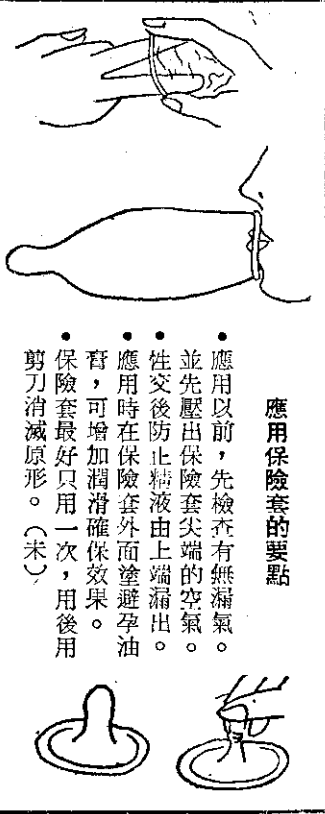 應用保險套的要點
• 應用以前，先檢查有無漏氣。
並先壓出保險套尖端的空氣。
• 性交後防止精液由上端漏出。
• 應用時在保險套外面塗避孕油
膏，可增加潤滑確保效果。
• 保險套最好只用一次，用後用
剪刀消滅原形。（未）